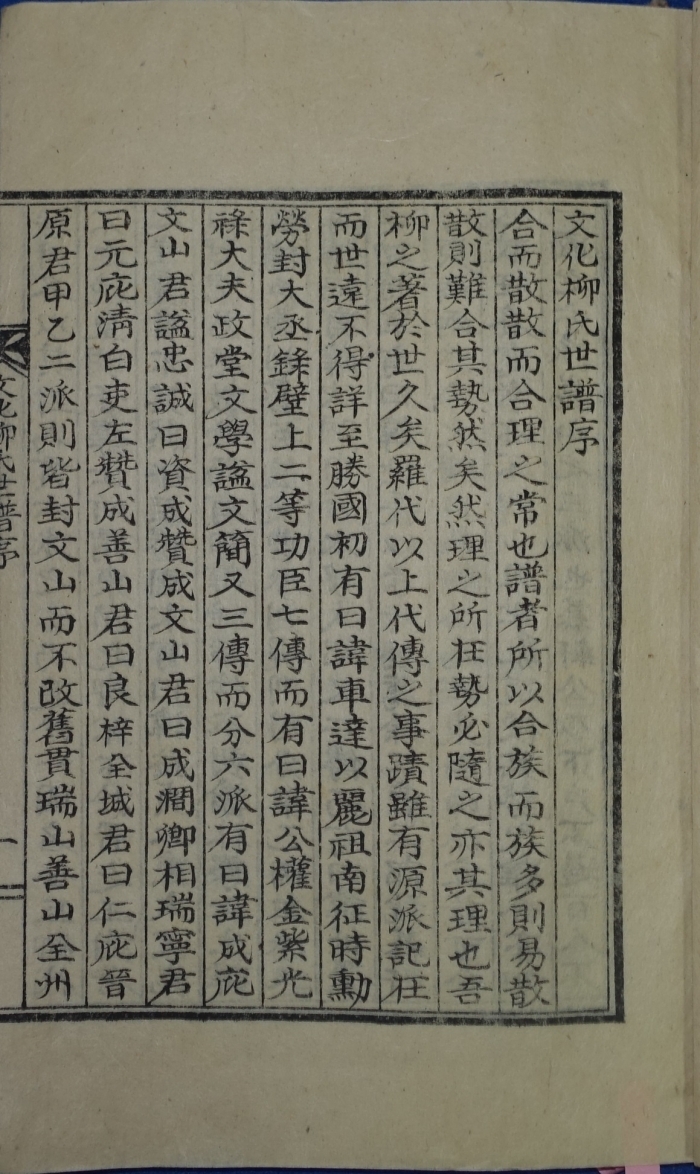 文化柳氏世譜序
合而散散而合理之常也譜者所以合族而族多則易散
散則難合其勢然矣然理之所在勢必隨之亦其理也吾
柳之著於世久矣羅代以上代傳之事蹟雖有源派記在
而世遠不得詳至勝國初有曰諱車達以麗祖南征時勳
勞封大丞錄壁上二等功臣七傳而有曰諱公權金紫光
祿大夫政堂文學諡文簡又三傳而分六派有曰諱成庇
文山君諡忠誠曰資成贊成文山君曰成澗卿相瑞寧君
曰元庇淸白吏左贊成善山君曰良梓全城君曰仁庇晉
原君甲乙二派則皆封文山而不改舊貫瑞山善山全州
文化柳氏世譜序
一